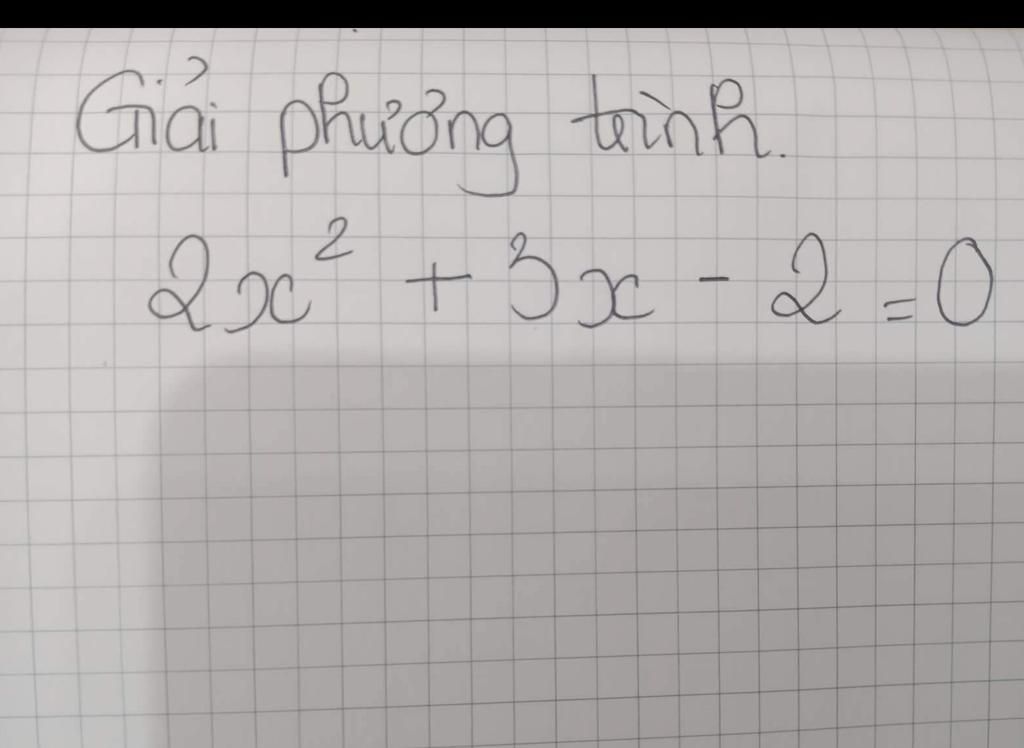 Giải phưởng trình.
2x² + 3x - 2 = 0